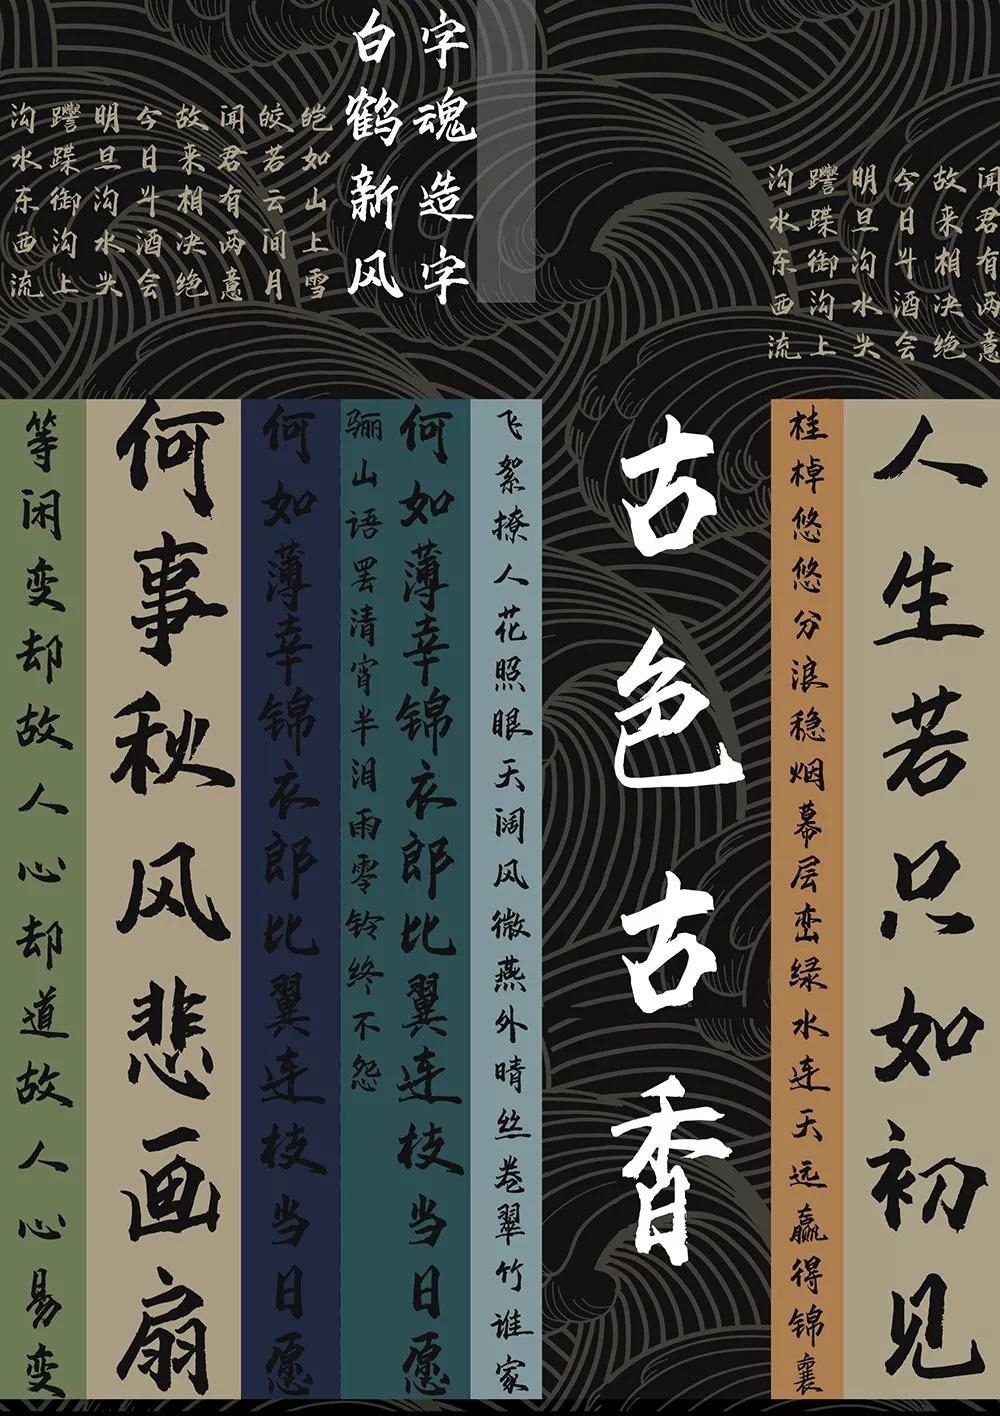 闻君有两意
故来相决绝
今日斗酒会
明旦沟水头
躞蹀御沟上
沟水东西流
字魂造字
白鹤新风
皑如山上雪
皎若云间月
闻君有两意
故来相决绝
今日斗酒会
明旦沟水头
躞蹀御沟上
沟水东西流
人生若只如初见
桂棹悠悠分浪稳烟幕层峦绿水连天远赢得锦襄
古色古香
飞絮撩人花照眼天阔风微燕外晴丝卷翠竹谁家
何如薄幸锦衣郎比翼连枝当日愿
骊山语罢清宵半泪雨零铃终不怨
何如薄幸锦衣郎比翼连枝当日愿
何事秋风悲画扇
等闲变却故人心却道故人心易变